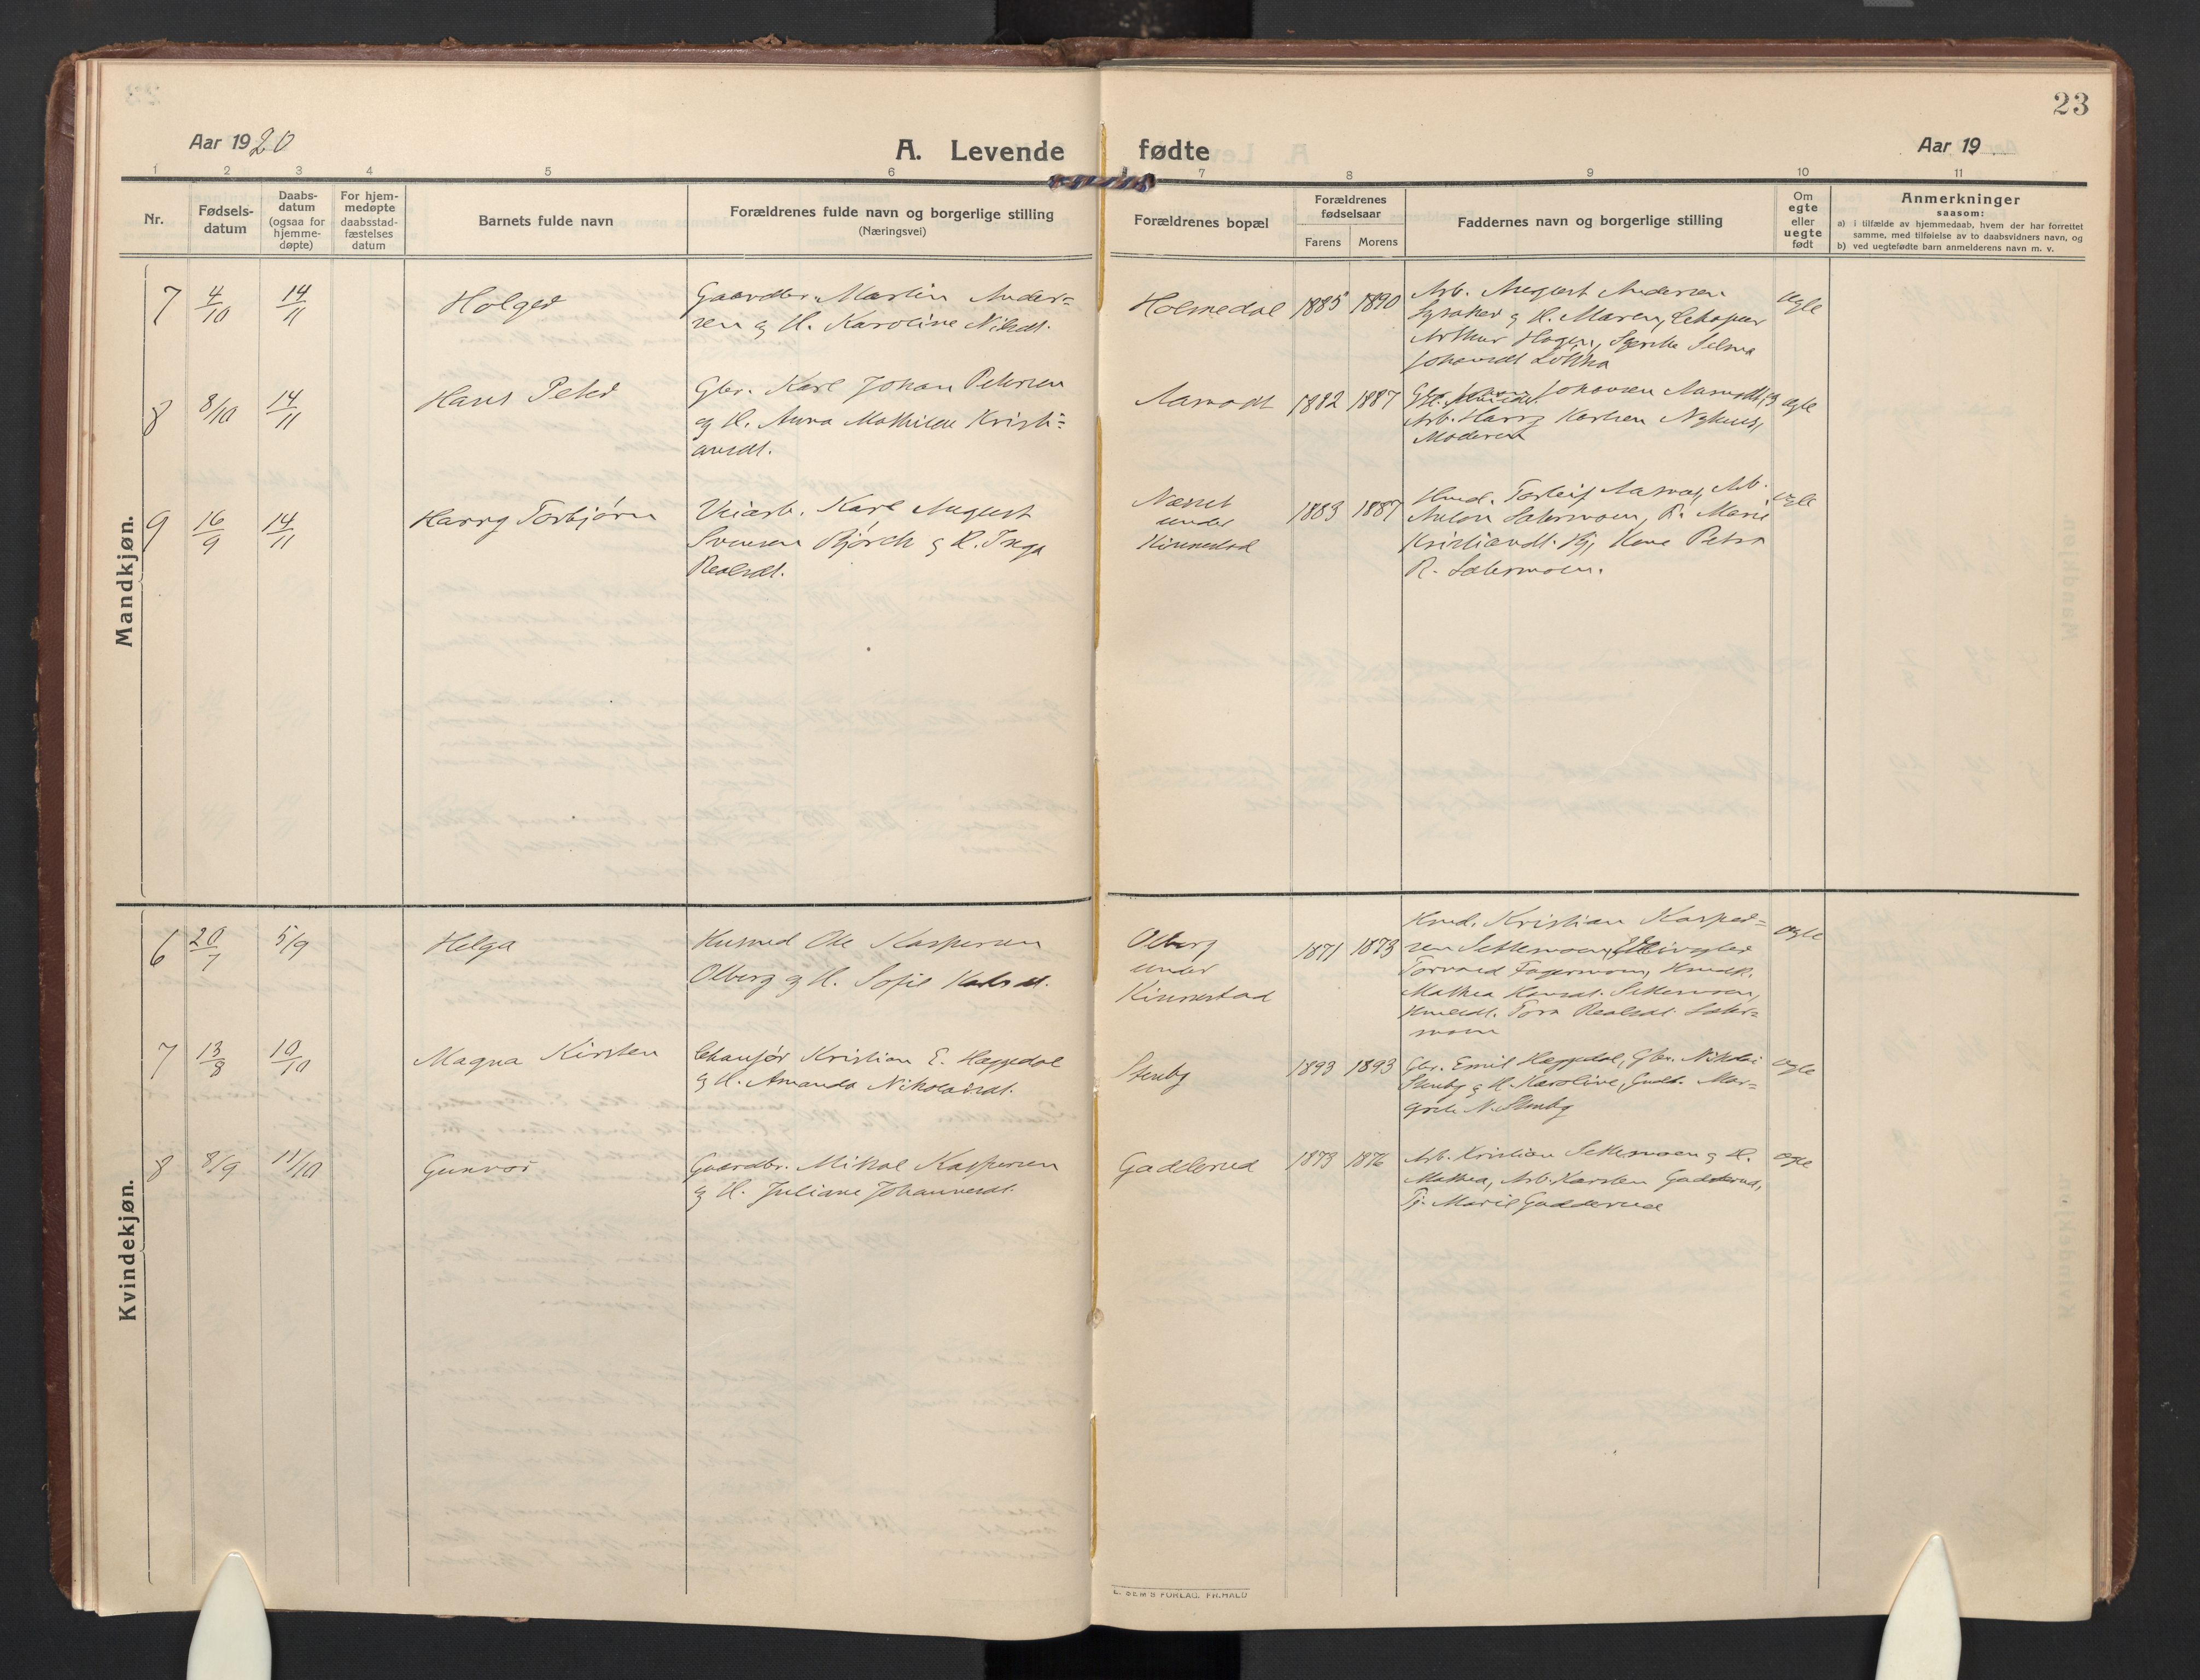 23
Aar 1920
A. Levende fødte
Aar 19
1 2 3 4 5 6 7 8 9 10 11
Nr.
Fødsels-
datum
Daabs-
datum
(ogsaa for
hjemme-
døpte)
For hjem-
medøpte
daabsstad-
fæstelses
datum
Barnets fulde navn
Forældrenes fulde navn og borgerlige stilling
(Næringsvei)
Forældrenes bopæl
Forældrenes
fødselsaar
Farens Morens
Faddernes navn og borgerlige stilling
Om
egte
eller
uegte
født
Anmerkninger
saasom:
a) i tilfælde av hjemmedaab, hvem der har forrettet
samme, med tilføielse av to daabsvidners navn, og
b) ved uegtefødte barn anmelderens navn m. v.
Mandkjøn.
7 4/10 14/11 Holger
Gaardbr. Martin Ander=
sen og H. Karoline Nilsdt.
Holmedal 1885 1890
Arb. August Andersen
og H. Maren,
Arthur Hagen, Selma
Johansdt
egte
8 8/10 14/11 Hans Peter
Gbr. Karl Johan Petersen
og H. Anna Mathilde Kristi=
ansdt.
1882 1887
Johansen
Arb. Harry Karlsen Nyhus,
Moderen
egte
9 16/9 14/11 Harry Torbjørn
Veiarb. Karl August
Svensen Bjørck og H. Inga
Nesset
under
Kinnestad
1883 1887
Torleif Arb.
Anton Sætermoen, P. Marie
Kristiansdt. Petra
R. Sætermoen.
egte
Kvindekjøn.
6 20/7 5/9 Helga
Husmd Ole Kaspersen
Olberg og H. Sofie
Olberg
under
Kinnestad
1871 1873
Husmd. Kristian Kasper=
sen Settesmoen,
Torvald Fagermoen,
Mathea Hansdt.
Tora Sæter=
moen
egte
7 13/8 10/10 Magna Kirsten
Chauffør Kristian E. Hæggedal
og H. Amanda Nikolaisdt.
Stenby 1893 1893
Gbr. Emil Hæggedal, Gbr. Nikolai
Stenby og H. Karoline, Mar=
grete N. Stenby
egte
8 8/9 11/10 Gunvor
Gaardbr. Mikal Kaspersen
og H. Juliane Johannesdt.
Gadderud 1873 1876
Arb. Kristian Settesmoen og H.
Mathea, Arb. Karsten Gadderud,
Tj. Marie Gadderud
egte
L. SEM'S FORLAG, FR.HALD